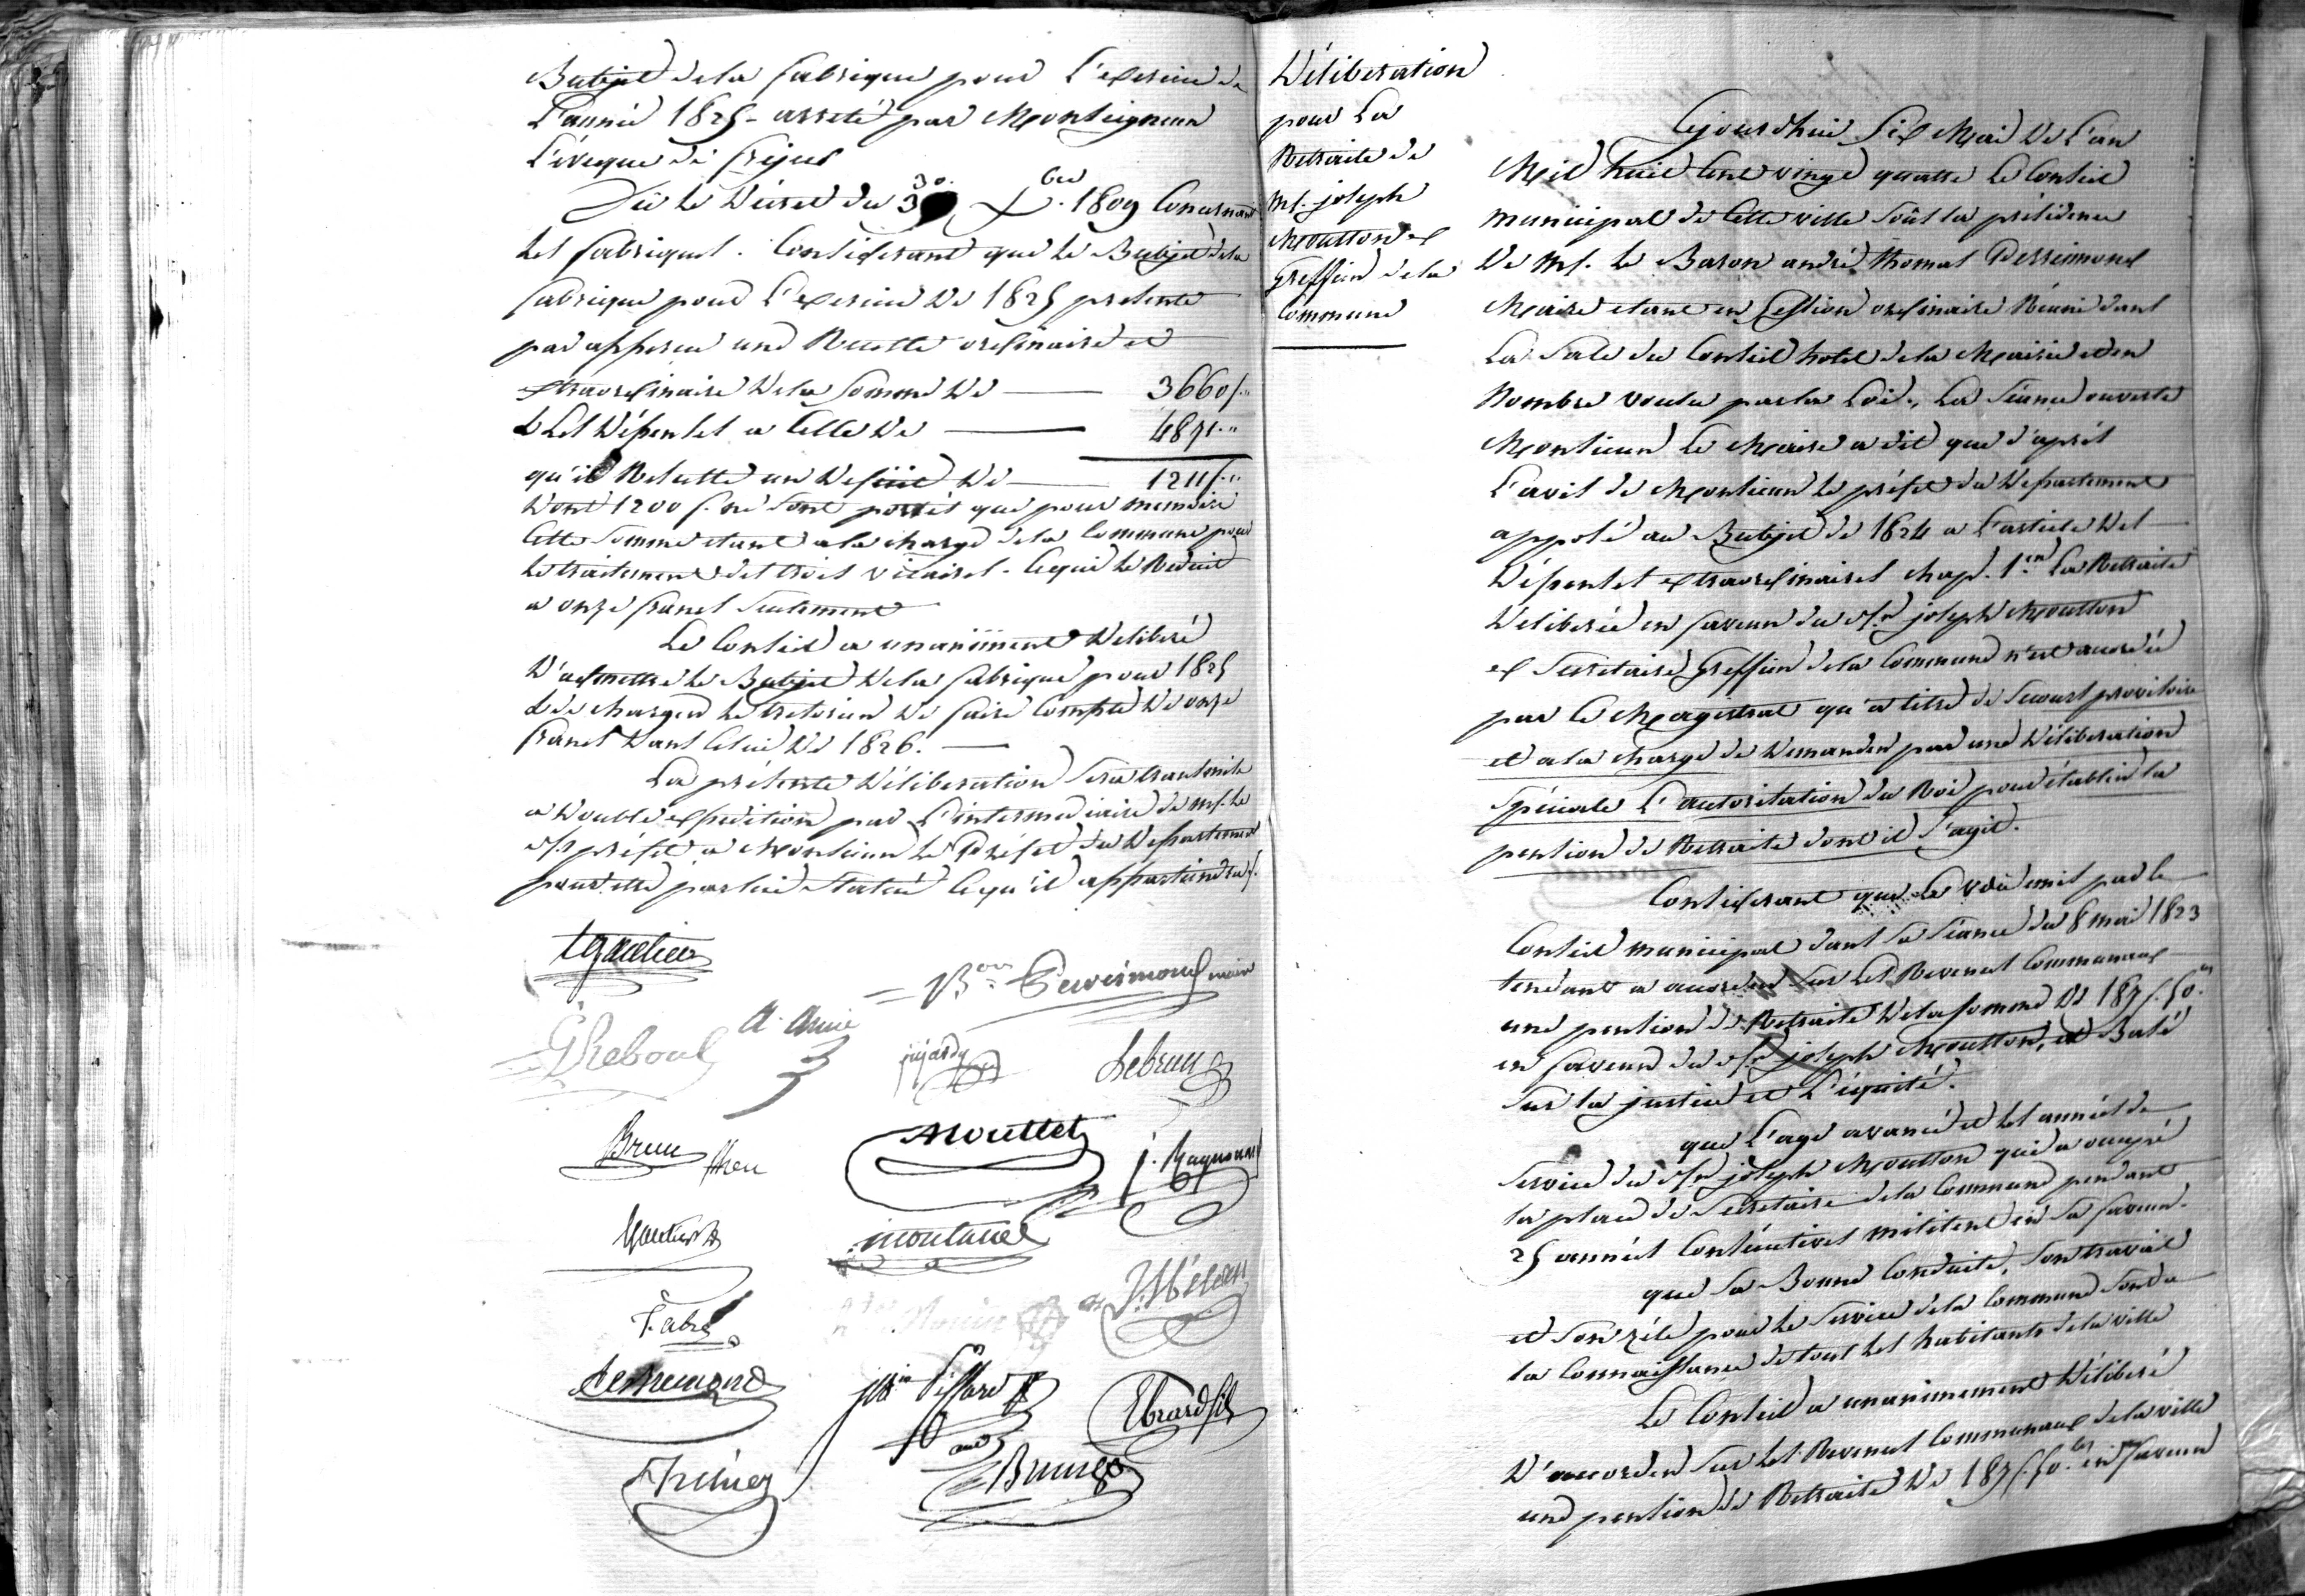 Budjet de la fabrique pour l'exercice de
L'année 1825 - arreté par Monseigneur
L'évêque de fréjus
Vû le Décret du 30 Xbre 1809 Concernant
les fabriques. Considerant que le Budjet dela
fabrique pour l'exercice de 1825 présente
par appercu une Recette ordinaire et
extraordinaire dela somme de — 3660f..
& Les dépenses a celle de — 4871..
qu'il Resulte un deficit de — 1211f..
dont 1200 f. ne sont portés que pour memoire
cette somme etant ala charge dela Commune pour
le traitement des trois vicaires. Cequi le Reduit
a onze francs seulement
Le Conseil a unaniment délibéré
D'admettre le Budjet dela fabrique pour 1825
& de charger le tresorier de faire compte de onze
francs dans celui de 1826. —
La présente Délibération sera transmise
a double expedition par l'intermediaire de mr. le
s/s préfet a Monsieur le Préfet du Departement
pour etre par lui statué cequ'il appartiendra.
Bon Perrimond maire
G Reboul
A. Amic
jujardy
Lebrun
Brun
Mouttet
montanel
Fabre
Ebrard fils
Brunet
Déliberation
pour La
Retraite de
Mr. joseph
Moutton ex
Greffier dela
Commune
Cejourdhui six Mai de L'an
Mil huit Cent vingt quatre Le Conseil
municipal de cette ville sous la présidence
de Mr. le Baron andré thomas Perrimond
Maire etant en session ordinaire Réuni dans
La Sale du Conseil hotel dela Mairie et en
Nombre voulu par la Loi., La séance ouverte
Monsieur le Maire a dit que d'après
L'avis de Monsieur le préfet du Departement
apposé au Budjet de 1824 a l'article des
dépenses extraordinaires chap. 1er. La Retraite
deliberée en faveur du sr joseph Moutton
ex Secretaire Greffier dela Commune n'est accordée
par ce Magistrat qu'a titre de Secours provisoire
et ala charge de demander par une Déliberation
spéciale L'autorisation du Roi pour établir la
pension de Retraite dont il s'agit.
Considerant que Le vœu emis par le
Conseil municipal dans sa séance du 8 mai 1823
tendant a accorder sur Les Revenus Communaux
une pension de Retraite dela somme de 187 f. 50cs
en faveur du sr joseph Moutton, est Basé
sur la justice et L'équité.
que L'age avancé et les années de
service du sr joseph Moutton qui a occupé
la place de Secretaire dela Commune pendant
25 années Consécutives militent en sa faveur.
que sa Bonne Conduite, son travail
et son zéle pour le service dela Commune sont a
la Connaissance de tous les habitants dela ville
Le Conseil a unanimement délibéré
D'accorder sur les Revenus Communaux dela ville
une pension de Retraite de 187 f. 50cs en faveur